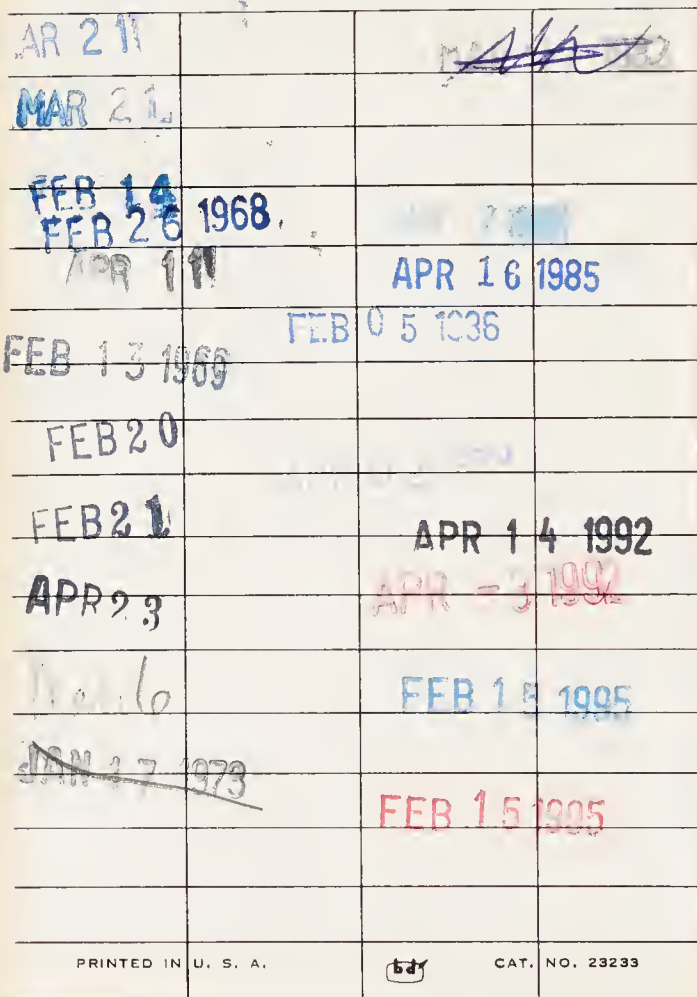 AR 21
MAR 21
FEB 14
FEB 26 1968
APR 11
FEB 13 1969
FEB 20
FEB 21
APR 23
6
JAN 17 1973
APR 16 1985
FEB 05 1986
APR 14 1992
APR -3 1992
FEB 15 1995
FEB 15 1995
PRINTED IN U. S. A.
bd
CAT. NO. 23233